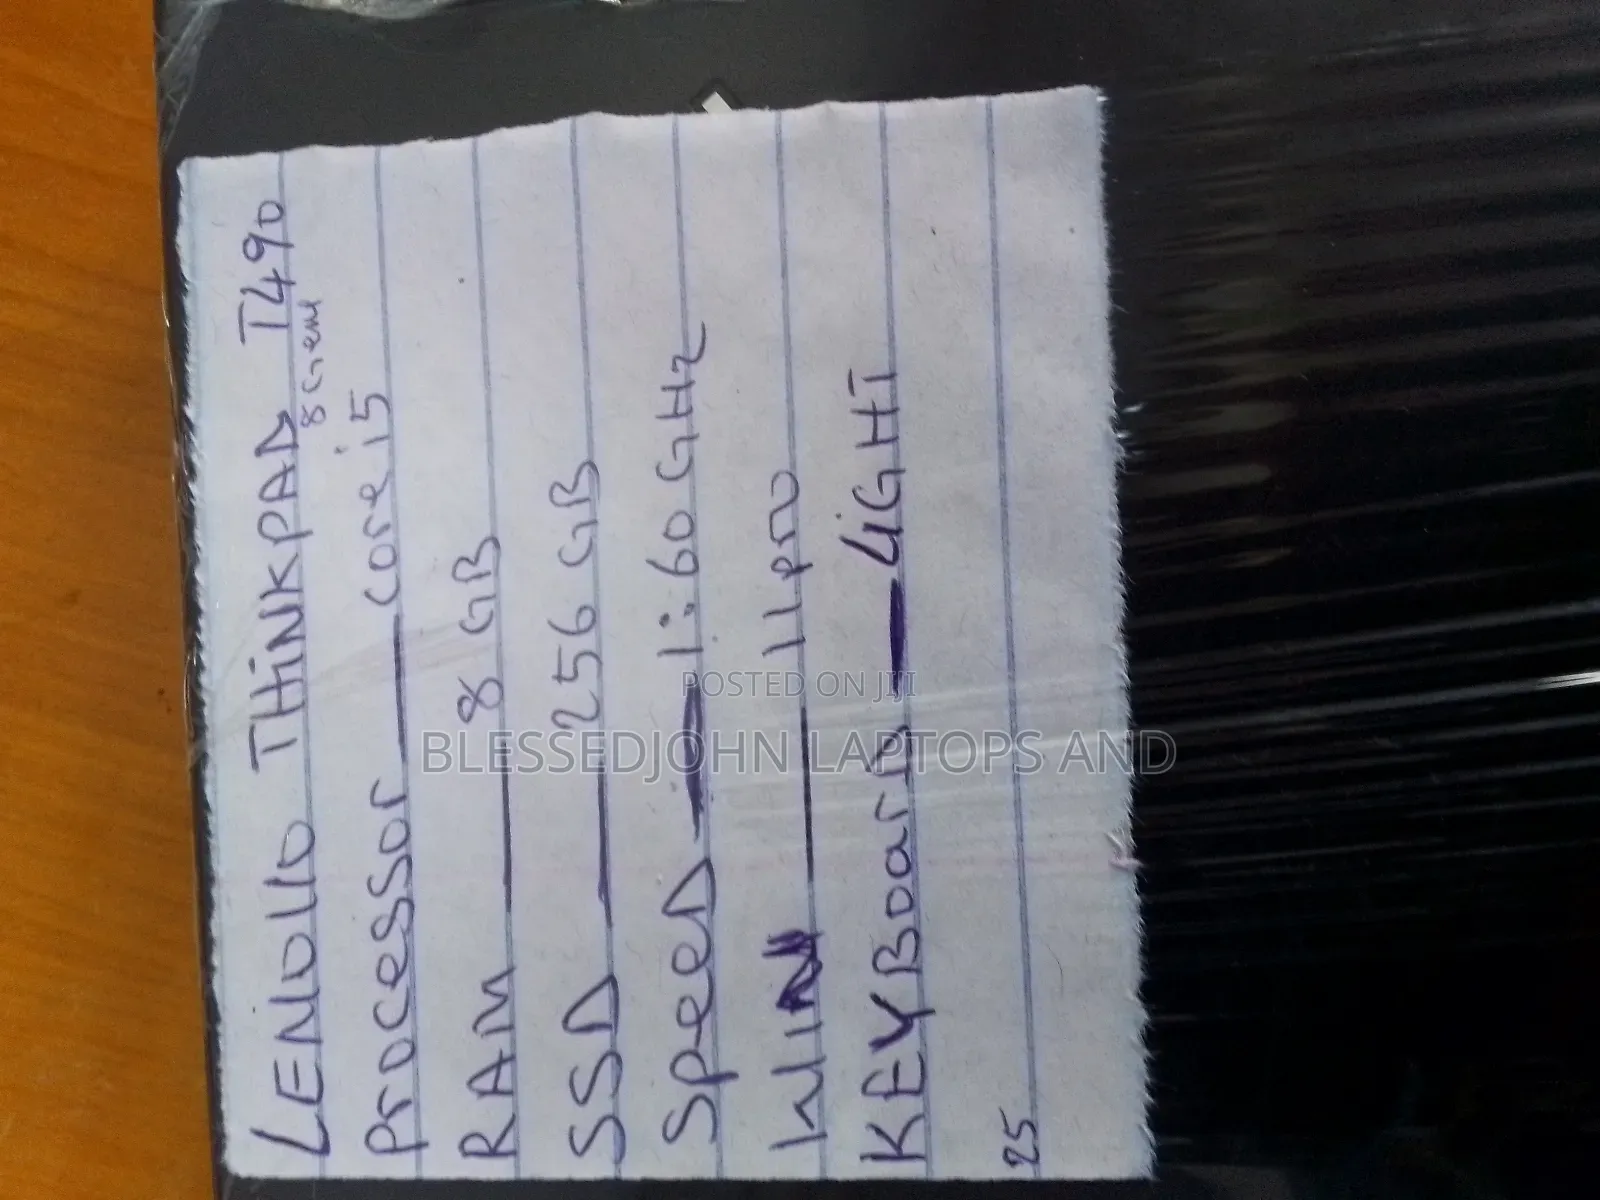 LENOVO THINKPAD T490
8 Gen
Processor — core i5
RAM — 8 GB
SSD — 256 GB
SpeeD — 1:60 GHz
WIN — 11 pro
KEYBoarD — LiGHT
25
POSTED ON JIJI
BLESSEDJOHN LAPTOPS AND